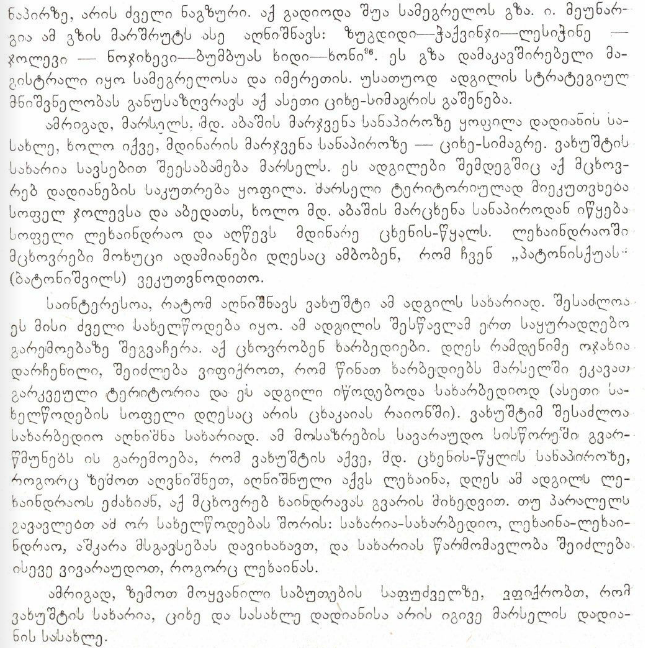 ნაპირზე, არის ძველი ნაგზური. აქ გადიოდა შუა სამეგრელოს გზა. ი. მეუნარ-
გია ამ გზის მარშრუტს ასე აღნიშნავს: ზუგდიდი—ჭაქვინჯი—ლესიჭინე —
ჯოლევი — ნოჯიხევი—ბუმბუას ხიდი—ხონი⁹⁶. ეს გზა დამაკავშირებელი მა-
გისტრალი იყო სამეგრელოსა და იმერეთის. უსათუოდ ადგილის სტრატეგიულ
მნიშვნელობას განუსაზღვრავს აქ ასეთი ციხე-სიმაგრის გაშენება.
ამრიგად, მარსელს, მდ. აბაშის მარჯვენა სანაპიროზე ყოფილა დადიანის სა-
სახლე, ხოლო იქვე, მდინარის მარჯვენა სანაპიროზე — ციხე-სიმაგრე. ვახუშტის
სახარია სავსებით შეესაბამება მარსელს. ეს ადგილები შემდეგშიც აქ მცხოვ-
რებ დადიანების საკუთრება ყოფილა. მარსელი ტერიტორიულად მიეკუთვნება
სოფელ ჯოლევსა და აბედათს, ხოლო მდ. აბაშის მარცხენა სანაპიროდან იწყება
სოფელი ლეხაინდრაო და აღწევს მდინარე ცხენის-წყალს. ლეხაინდრაოში
მცხოვრები მოხუცი ადამიანები დღესაც ამბობენ, რომ ჩვენ „პატონისქუას“
(ბატონიშვილს) ვეკუთვნოდითო.
საინტერესოა, რატომ აღნიშნავს ვახუშტი ამ ადგილს სახარიად. შესაძლოა
ეს მისი ძველი სახელწოდება იყო. ამ ადგილის შესწავლამ ერთ საყურადღებო
გარემოებაზე შეგვაჩერა. აქ ცხოვრობენ ხარბედიები. დღეს რამდენიმე ოჯახია
დარჩენილი, შეიძლება ვიფიქროთ, რომ წინათ ხარბედიებს მარსელში ეკავათ
გარკვეული ტერიტორია და ეს ადგილი იწოდებოდა სახარბედიოდ (ასეთი სა-
ხელწოდების სოფელი დღესაც არის ცხაკაიას რაიონში). ვახუშტიმ შესაძლოა
სახარბედიო აღნიშნა სახარიად. ამ მოსაზრების სავარაუდო სისწორეში გვარ-
წმუნებს ის გარემოება, რომ ვახუშტის აქვე, მდ. ცხენის-წყლის სანაპიროზე,
როგორც ზემოთ აღვნიშნეთ, აღნიშნული აქვს ლეხაინა, დღეს ამ ადგილს ლე-
ხაინდრაოს ეძახიან, აქ მცხოვრებ ხაინდრავას გვარის მიხედვით. თუ პარალელს
გავავლებთ ამ ორ სახელწოდებას შორის: სახარია-სახარბედიო, ლეხაინა-ლეხაი-
ნდრაო, აშკარა მსგავსებას დავინახავთ, და სახარიას წარმომავლობა შეიძლება
ისევე ვივარაუდოთ, როგორც ლეხაინას.
ამრიგად, ზემოთ მოყვანილი საბუთების საფუძველზე, ვფიქრობთ, რომ
ვახუშტის სახარია, ციხე და სასახლე დადიანისა არის იგივე მარსელის დადია-
ნის სასახლე.